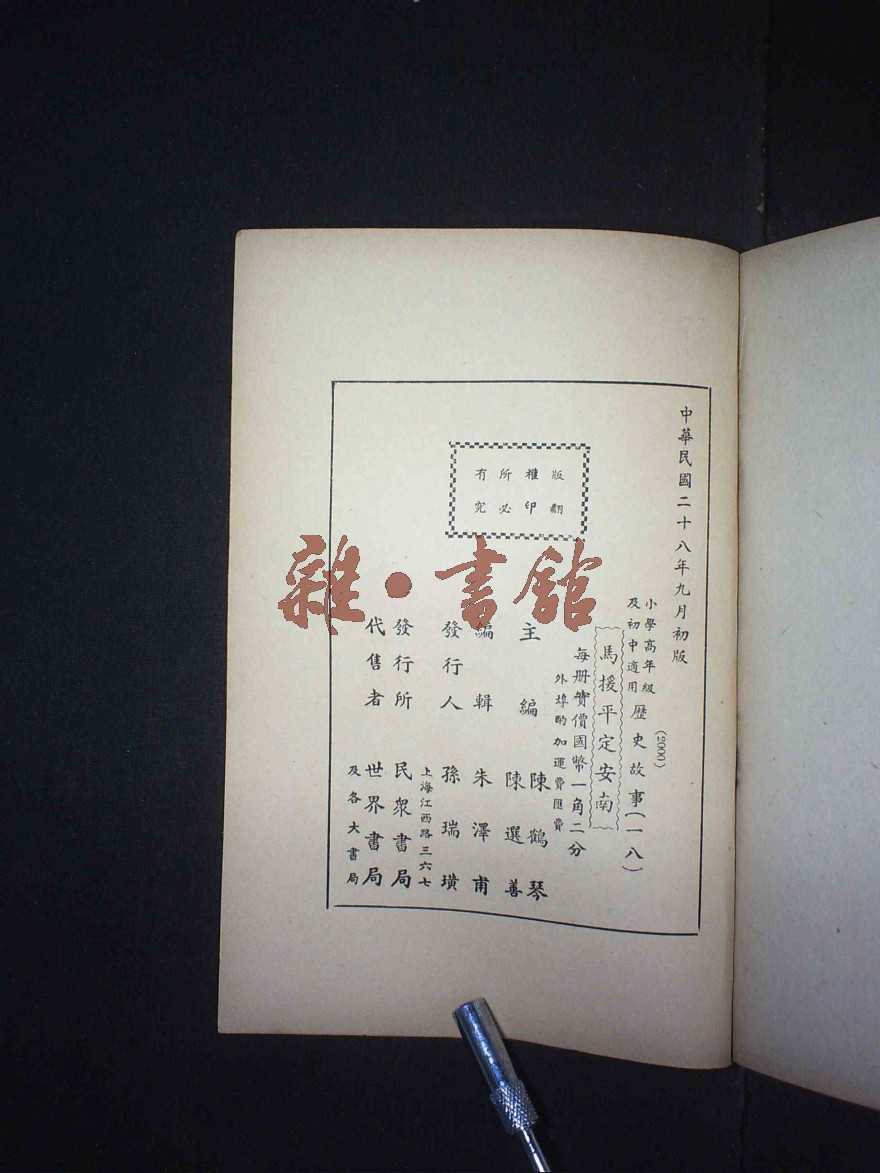 中華民國二十八年九月初版
(2000)
小學高年級
及初中適用
歷史故事(一八)
馬援平定安南
每册實價國幣一角二分
外埠酌加運費匯費
版權所有
翻印必究
主編 陳鶴琴
陳選善
編輯 朱澤甫
發行人 孫瑞璜
上海江西路三六七
發行所 民衆書局
代售者 世界書局
及各大書局
雜·書館